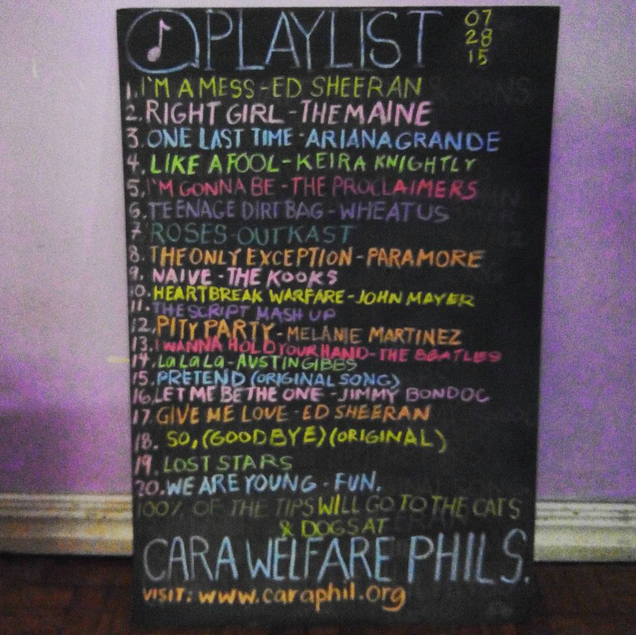 PLAYLIST 07 28 15
1. I'M A MESS - ED SHEERAN
2. RIGHT GIRL - THE MAINE
3. ONE LAST TIME - ARIANA GRANDE
4. LIKE A FOOL - KEIRA KNIGHTLY
5. I'M GONNA BE - THE PROCLAIMERS
6. TEENAGE DIRTBAG - WHEATUS
7. ROSES - OUTKAST
8. THE ONLY EXCEPTION - PARAMORE
9. NAIVE - THE KOOKS
10. HEARTBREAK WARFARE - JOHN MAYER
11. THE SCRIPT MASH UP
12. PITY PARTY - MELANIE MARTINEZ
13. I WANNA HOLD YOUR HAND - THE BEATLES
14. La La La - AUSTIN GIBBS
15. PRETEND (ORIGINAL SONG)
16. LET ME BE THE ONE - JIMMY BONDOC
17. GIVE ME LOVE - ED SHEERAN
18. SO, (GOODBYE) (ORIGINAL)
19. LOST STARS
20. WE ARE YOUNG - FUN.
100% OF THE TIPS WILL GO TO THE CATS
& DOGS AT
CARA WELFARE PHILS.
VISIT: www.caraphil.org